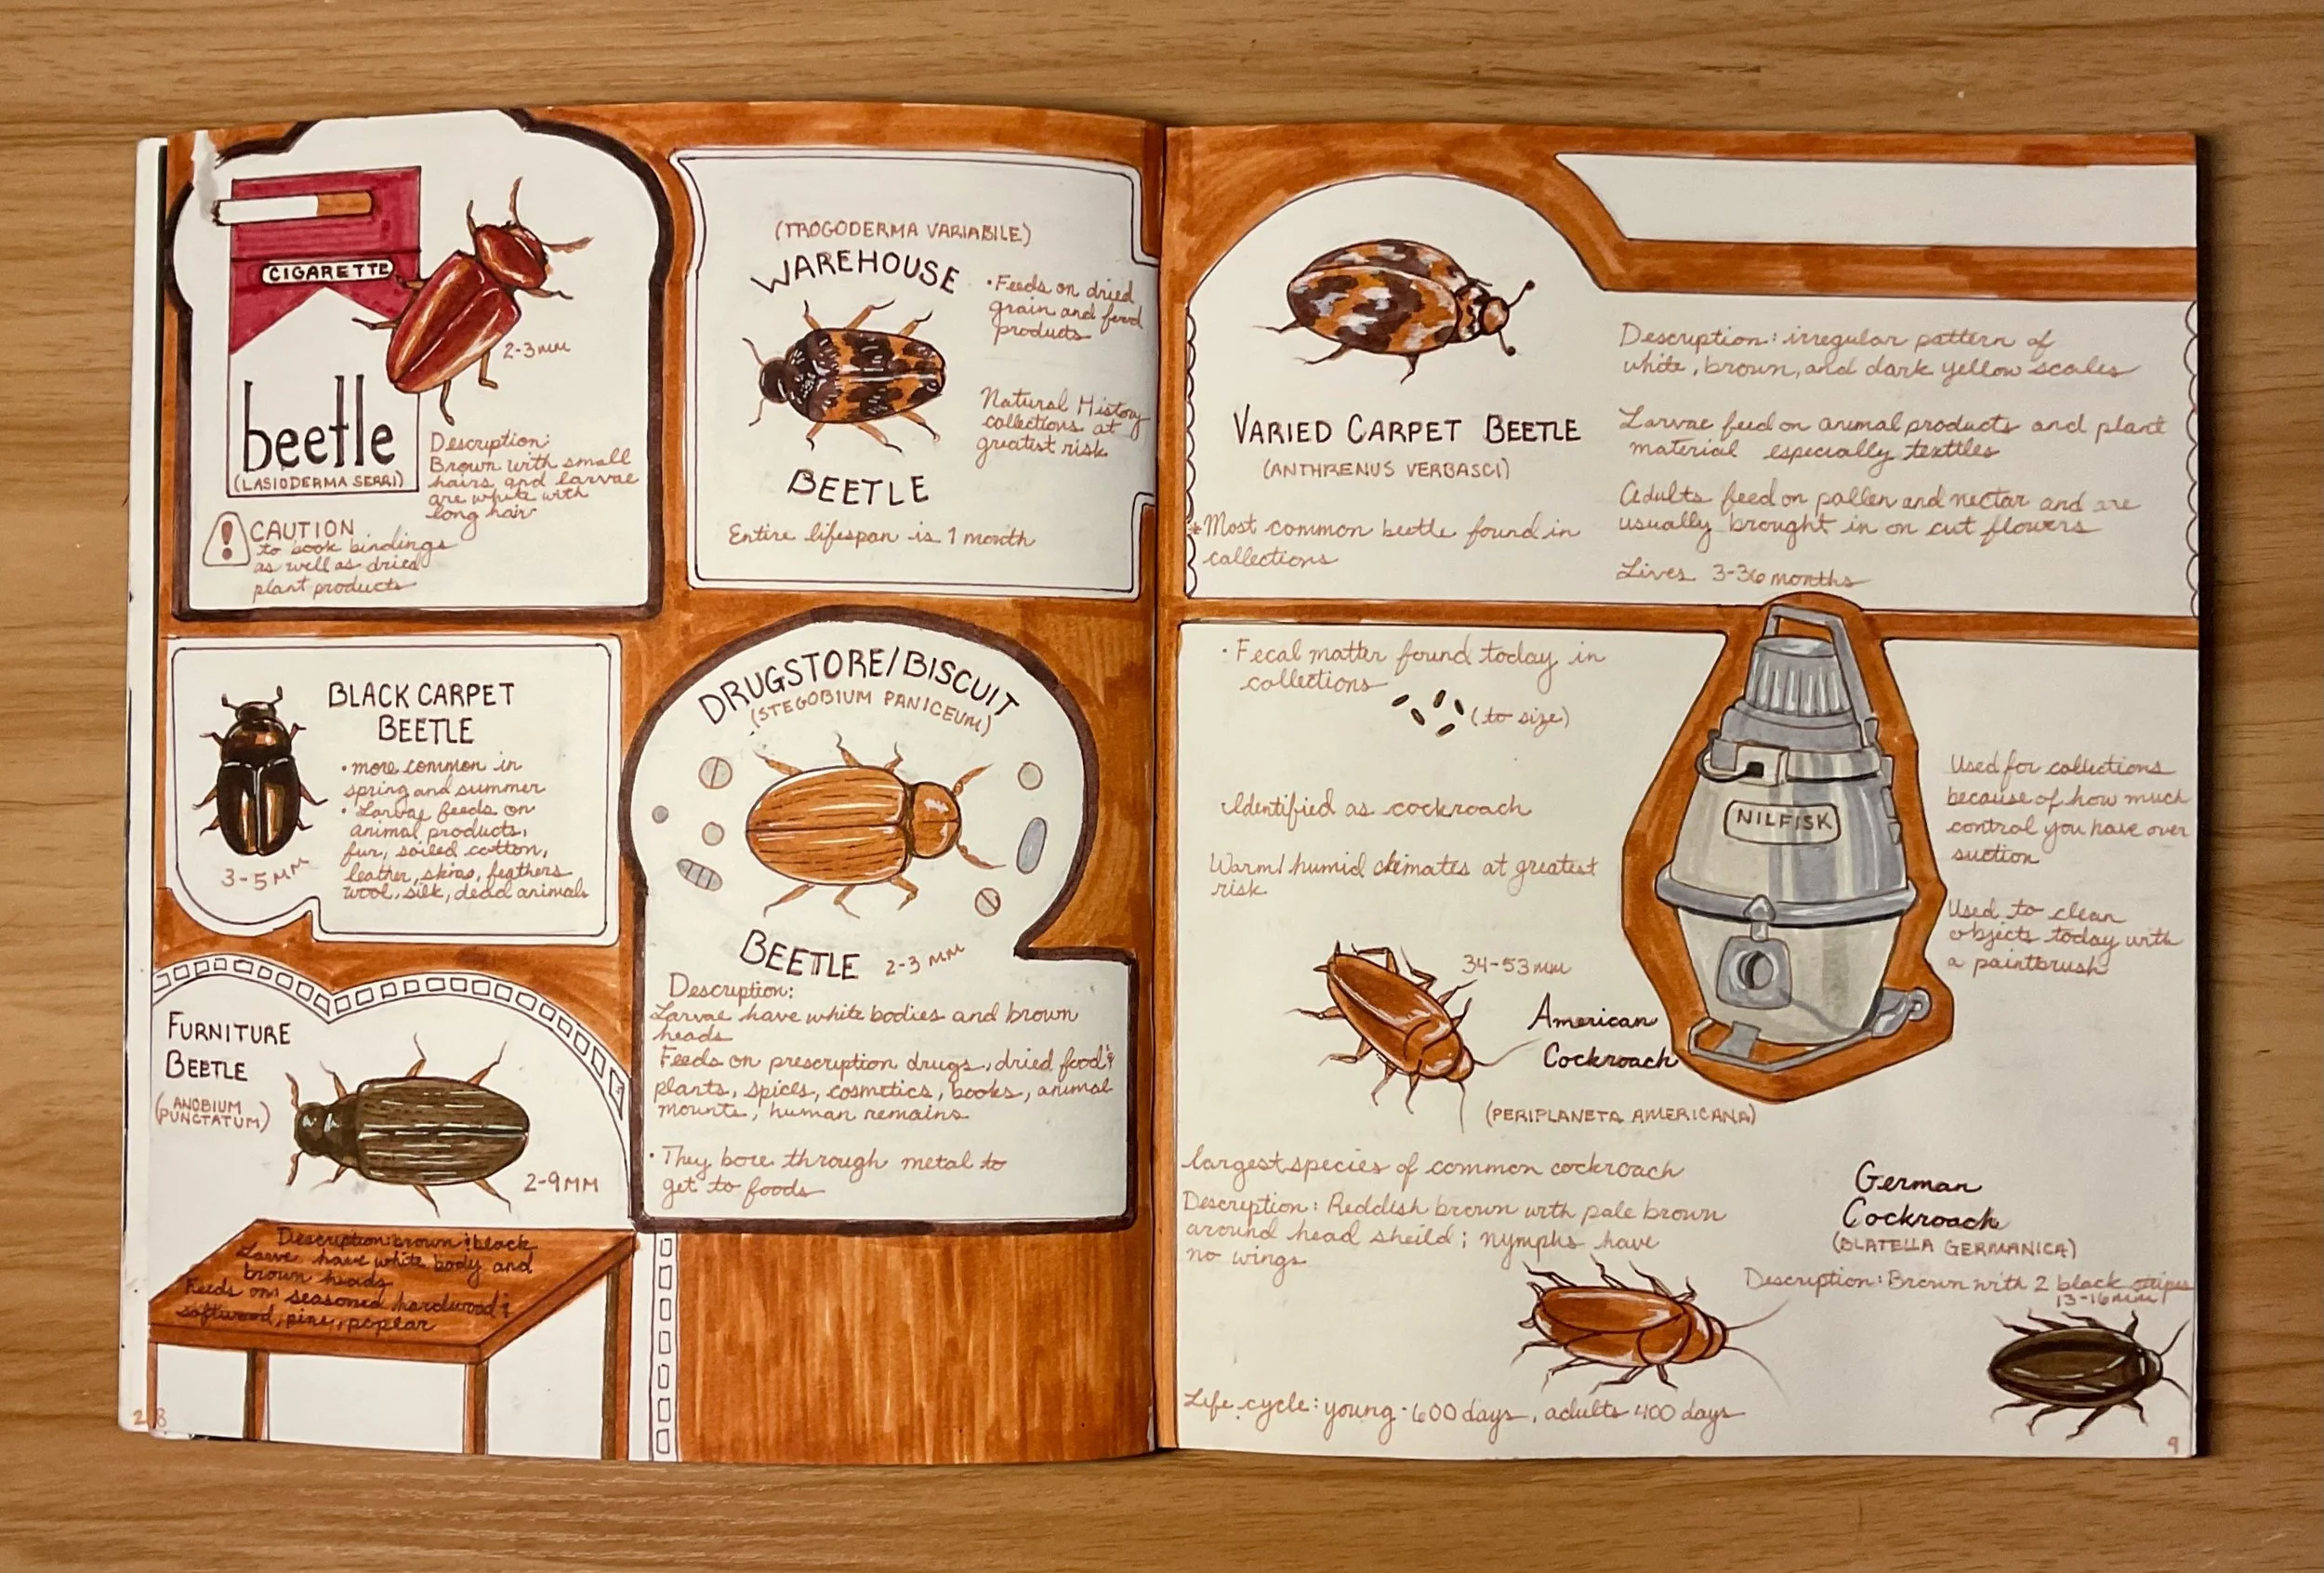 CIGARETTE
2-3mm
beetle
(LASIODERMA SERRI)
Description:
Brown with small
hairs and larvae
are white with
long hair
! CAUTION
to book bindings
as well as dried
plant products
(TROGODERMA VARIABILE)
WAREHOUSE
• Feeds on dried
grain and food
products
Natural History
collections at
greatest risk
BEETLE
Entire lifespan is 1 month
BLACK CARPET
BEETLE
• more common in
spring and summer
• Larvae feeds on
animal products,
fur, soiled cotton,
leather, skins, feathers
wool, silk, dead animals
3-5mm
DRUGSTORE/BISCUIT
(STEGOBIUM PANICEUM)
BEETLE 2-3mm
Description:
Larvae have white bodies and brown
heads
Feeds on prescription drugs, dried food &
plants, spices, cosmetics, books, animal
mounts, human remains
• They bore through metal to
get to foods
FURNITURE
BEETLE
(ANOBIUM
PUNCTATUM)
2-9MM
Description: brown & black
Larve have white body and
brown heads
Feeds on: seasoned hardwood &
softwood, pine, poplar
28
VARIED CARPET BEETLE
(ANTHRENUS VERBASCI)
*Most common beetle found in
collections
Description: irregular pattern of
white, brown, and dark yellow scales
Larvae feed on animal products and plant
material especially textiles
Adults feed on pollen and nectar and are
usually brought in on cut flowers
Lives 3-36 months
• Fecal matter found today in
collections
(to size)
Identified as cockroach
Warm/humid climates at greatest
risk
NILFISK
Used for collections
because of how much
control you have over
suction
Used to clean
objects today with
a paintbrush
34-53mm
American
Cockroach
(PERIPLANETA AMERICANA)
largest species of common cockroach
Description: Reddish brown with pale brown
around head sheild; nymphs have
no wings
German
Cockroach
(BLATELLA GERMANICA)
Description: Brown with 2 black stripes
13-16mm
Life cycle: young - 600 days, adults 400 days
9